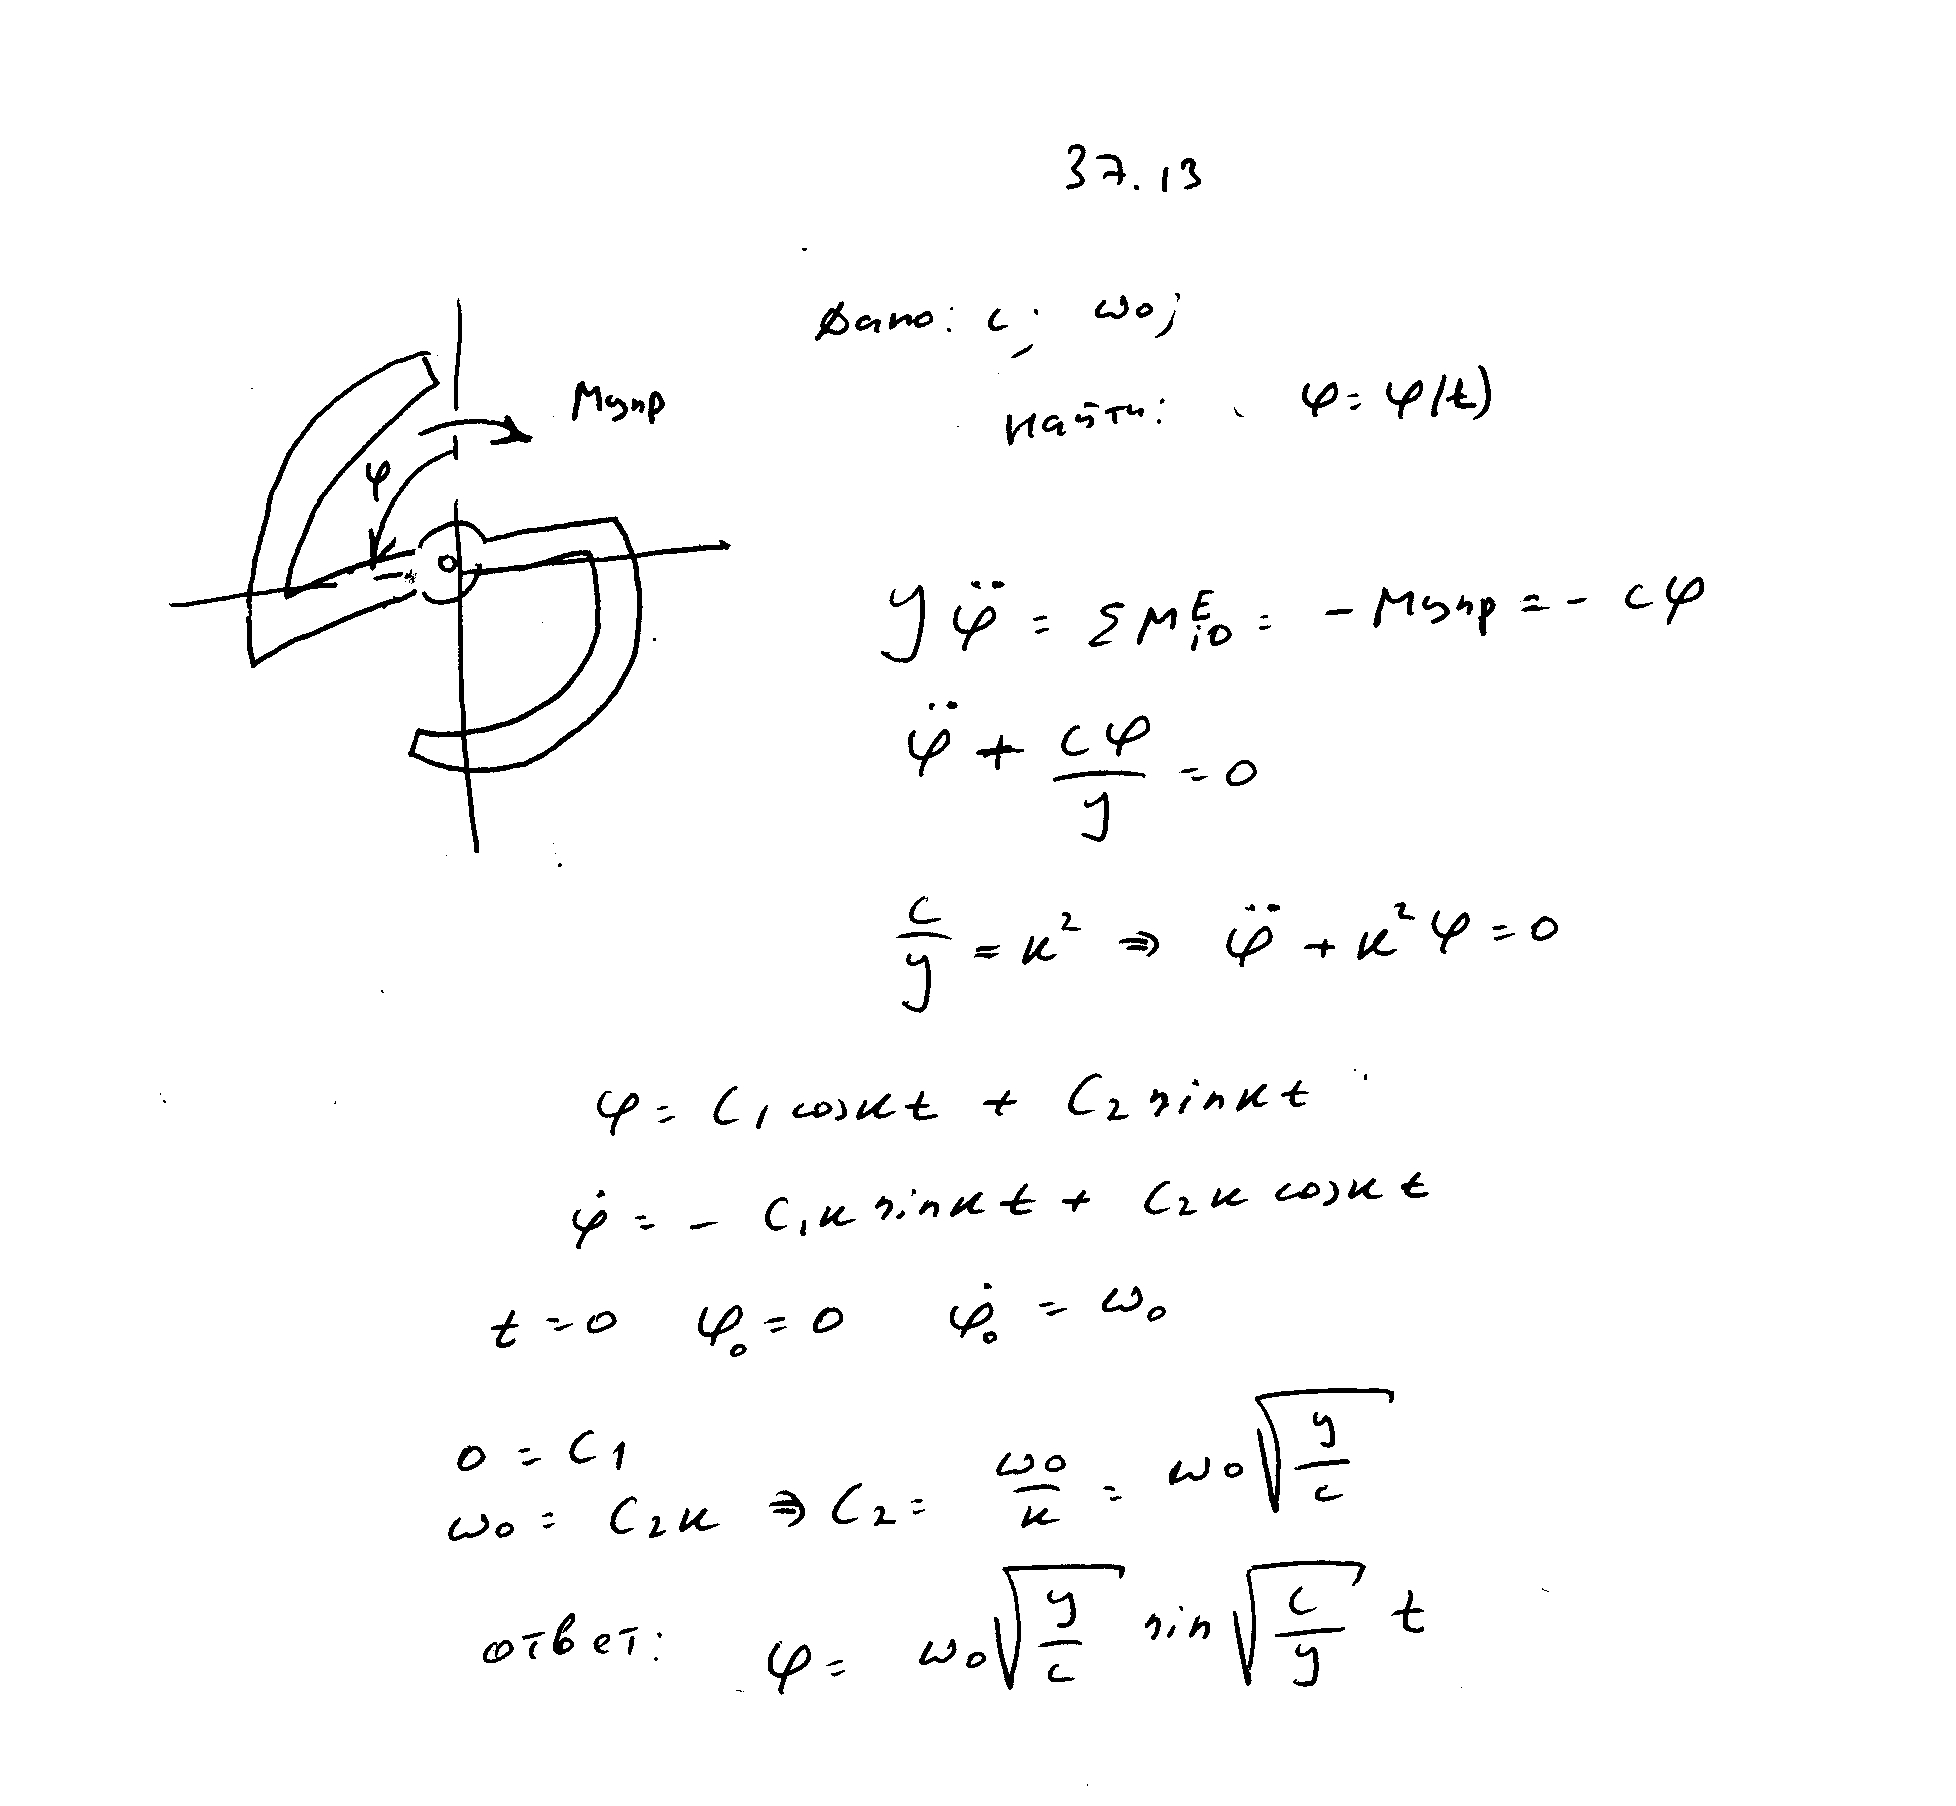 37.13
Дано: c; ω₀;
Найти: φ = φ(t)
Mупр
φ
O
Jφ̈ = ΣMᴱᵢₒ = - Mупр = - cφ
φ̈ + cφ/J = 0
c/J = k² ⇒ φ̈ + k²φ = 0
φ = C₁ cos kt + C₂ sin kt
φ̇ = - C₁k sin kt + C₂k cos kt
t = 0 φ₀ = 0 φ̇₀ = ω₀
0 = C₁
ω₀ = C₂k ⇒ C₂ = ω₀/k = ω₀√(J/c)
ответ: φ = ω₀√(J/c) sin √(c/J) t